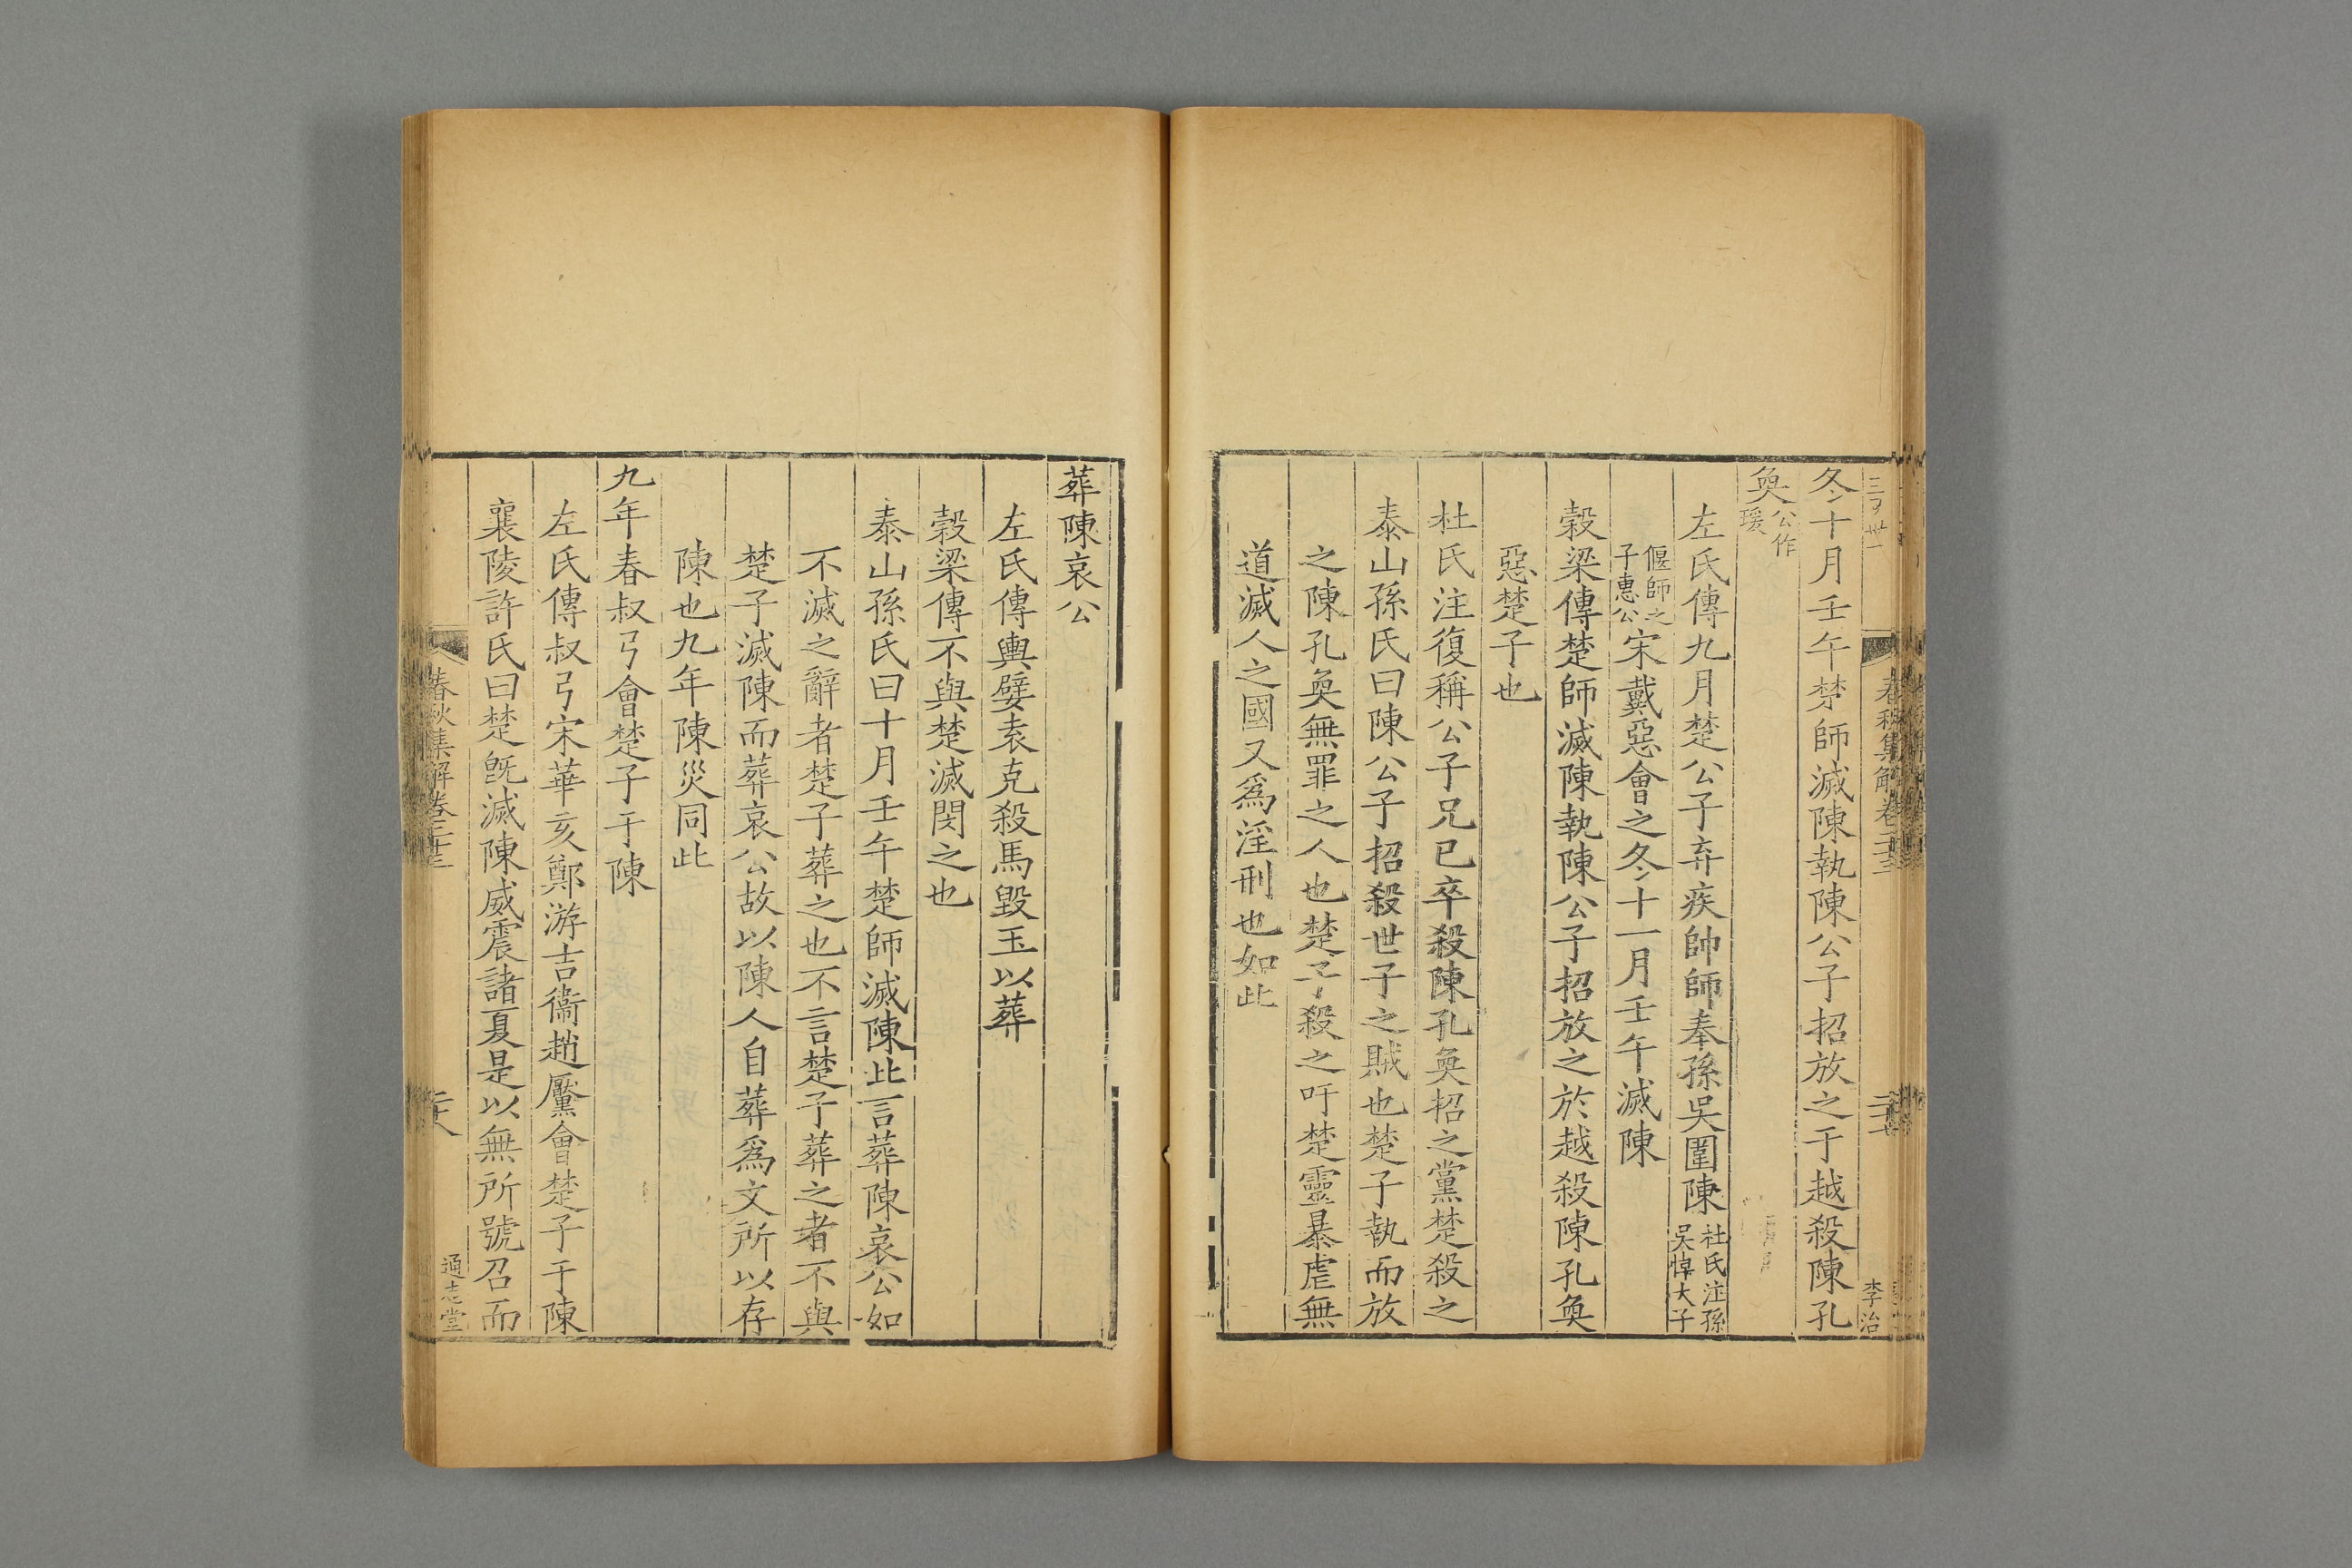 冬十月壬午楚師滅陳執陳公子招放之于越殺陳孔
奐公作瑗
左氏傳九月楚公子弃疾帥師奉孫吳圍陳杜氏注孫吳悼大子
偃師之子惠公宋戴惡會之冬十一月壬午滅陳
穀梁傳楚師滅陳執陳公子招放之於越殺陳孔奐
惡楚子也
杜氏注復稱公子兄已卒殺陳孔奐招之黨楚殺之
泰山孫氏曰陳公子招殺世子之賊也楚子執而放
之陳孔奐無罪之人也楚子殺之吁楚靈暴虐無
道滅人之國又爲淫刑也如此
葬陳哀公
左氏傳輿嬖袁克殺馬毀玉以葬
穀梁傳不與楚滅閔之也
泰山孫氏曰十月壬午楚師滅陳此言葬陳哀公如
不滅之辭者楚子葬之也不言楚子葬之者不與
楚子滅陳而葬哀公故以陳人自葬爲文所以存
陳也九年陳災同此
九年春叔弓會楚子于陳
左氏傳叔弓宋華亥鄭游吉衞趙黶會楚子于陳
襄陵許氏曰楚旣滅陳威震諸夏是以無所號召而
春秋集解卷二十三
二十八
通志堂
李治